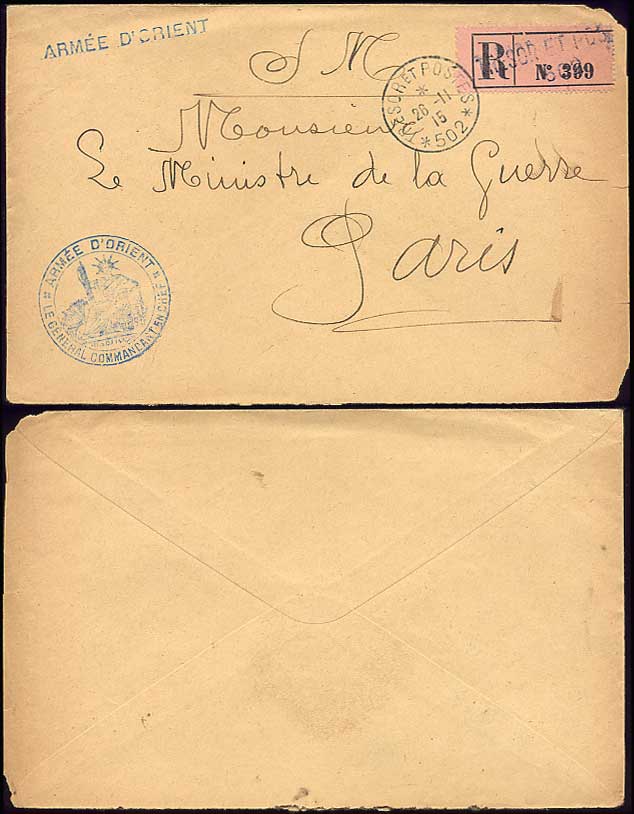 ARMÉE D'ORIENT
S M
R N° 399
TRESOR ET POSTES
* 26 -11 15 *
* 502 *
Monsieur
Le Ministre de la Guerre
Paris
ARMÉE D'ORIENT
LE GÉNÉRAL COMMANDANT EN CHEF